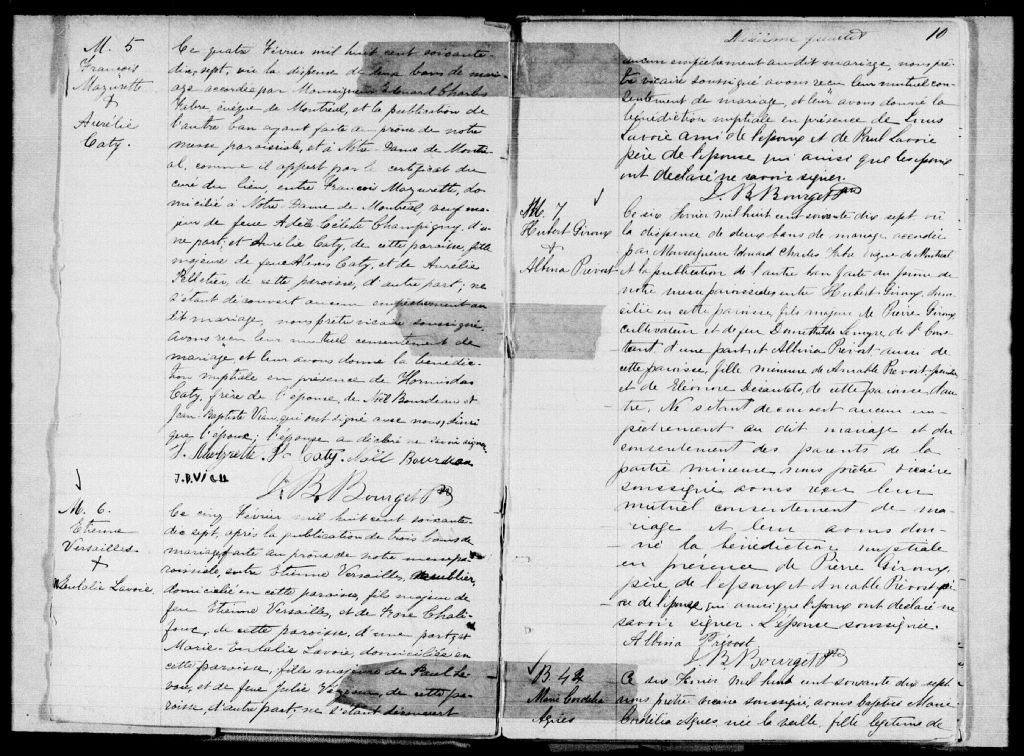 M. 5
François
Mazurette
+
Aurélie
Caty.
Ce quatre Février mil huit cent soixante-
dix-sept, vu la dispense de deux bans de mari-
age accordée par Monseigneur Edouard Charles
Fabre évêque de Montréal, et la publication de
l'autre ban ayant faite au prône de notre
messe paroissiale, et à Notre Dame de Montré-
al, comme il appert par le certificat du
curé du lieu, entre François Mazurette, do-
micilié à Notre Dame de Montréal veuf ma-
jeur de feue Adèle Céleste Champigny, d'u-
ne part, et Aurélie Caty, de cette paroisse, fille
majeure de feu Alexis Caty, et de Aurélie
Pelletier, de cette paroisse, d'autre part; ne
s'étant découvert aucun empêchement au
dit mariage, nous prêtre vicaire soussigné,
avons reçu leur mutuel consentement de
mariage et leur avons donné la bénédic-
tion nuptiale en présence de Hormisdas
Caty, frère de l'épouse, de Noël Bourdeau et
Jean-Baptiste Viau, qui ont signé avec nous, ainsi
que l'époux; l'épouse a déclaré ne savoir signer.
F. Mazurette Caty Noël Bourdeau
J.B. Viau
J. B. Bourget Ptre
M. 6.
Etienne
Versailles
+
Eulalie Lavoie
Ce cinq Février mil huit cent soixante-
dix sept, après la publication de trois bans de
mariage faite au prône de notre messe pa-
roissiale, entre Etienne Versailles,
domicilié en cette paroisse, fils majeur de
feu Etienne Versailles, et de Rose Chali-
foux, de cette paroisse, d'une part, et
Marie-Eulalie Lavoie, domiciliée en
cette paroisse, fille majeure de Paul La-
voie, et de feue Julie Vézina, de cette pa-
roisse, d'autre part; ne s'étant découvert
Dixième feuillet 10
aucun empêchement au dit mariage, nous prê-
tre vicaire soussigné avons reçu leur mutuel con-
sentement de mariage, et leur avons donné la
bénédiction nuptiale en présence de Louis
Lavoie ami de l'époux et de Paul Lavoie
père de l'épouse qui ainsi que les époux
ont déclaré ne savoir signer.
J. B. Bourget Ptre
M. 7
Hubert Giroux
+
Albina Prévost
Ce six Février mil huit cent soixante dix sept vu
la dispense de deux bans de mariage accordée
par Monseigneur Edouard Charles Fabre Evêque de Montréal
et la publication de l'autre ban faite au prône de
notre messe paroissiale entre Hubert Giroux, domi-
cilié en cette paroisse, fils majeur de Pierre Giroux
cultivateur et de feu Domithilde Lemyre de St Cons-
tant, d'une part et Albina Prévost aussi de
cette paroisse, fille mineure de Amable Prévost
et de Eléonore Désautels, de cette paroisse d'au-
tre. Ne s'étant découvert aucun em-
pêchement au dit mariage et du
consentement des parents de la
partie mineure, nous prêtre vicaire
soussigné avons reçu leur
mutuel consentement de ma-
riage et leur avons don-
né la bénédiction nuptiale
en présence de Pierre Giroux
père de l'époux et Amable Prévost pè-
re de l'épouse, qui ainsi que l'époux ont déclaré ne
savoir signer. L'épouse soussignée.
Albina Prévost
J. B. Bourget Ptre
B. 42
Marie Cordélia
Agnès
Ce six Février mil huit cent soixante dix sept
nous prêtre vicaire soussigné, avons baptisé Marie
Cordélia Agnès, née la veille, fille légitime de